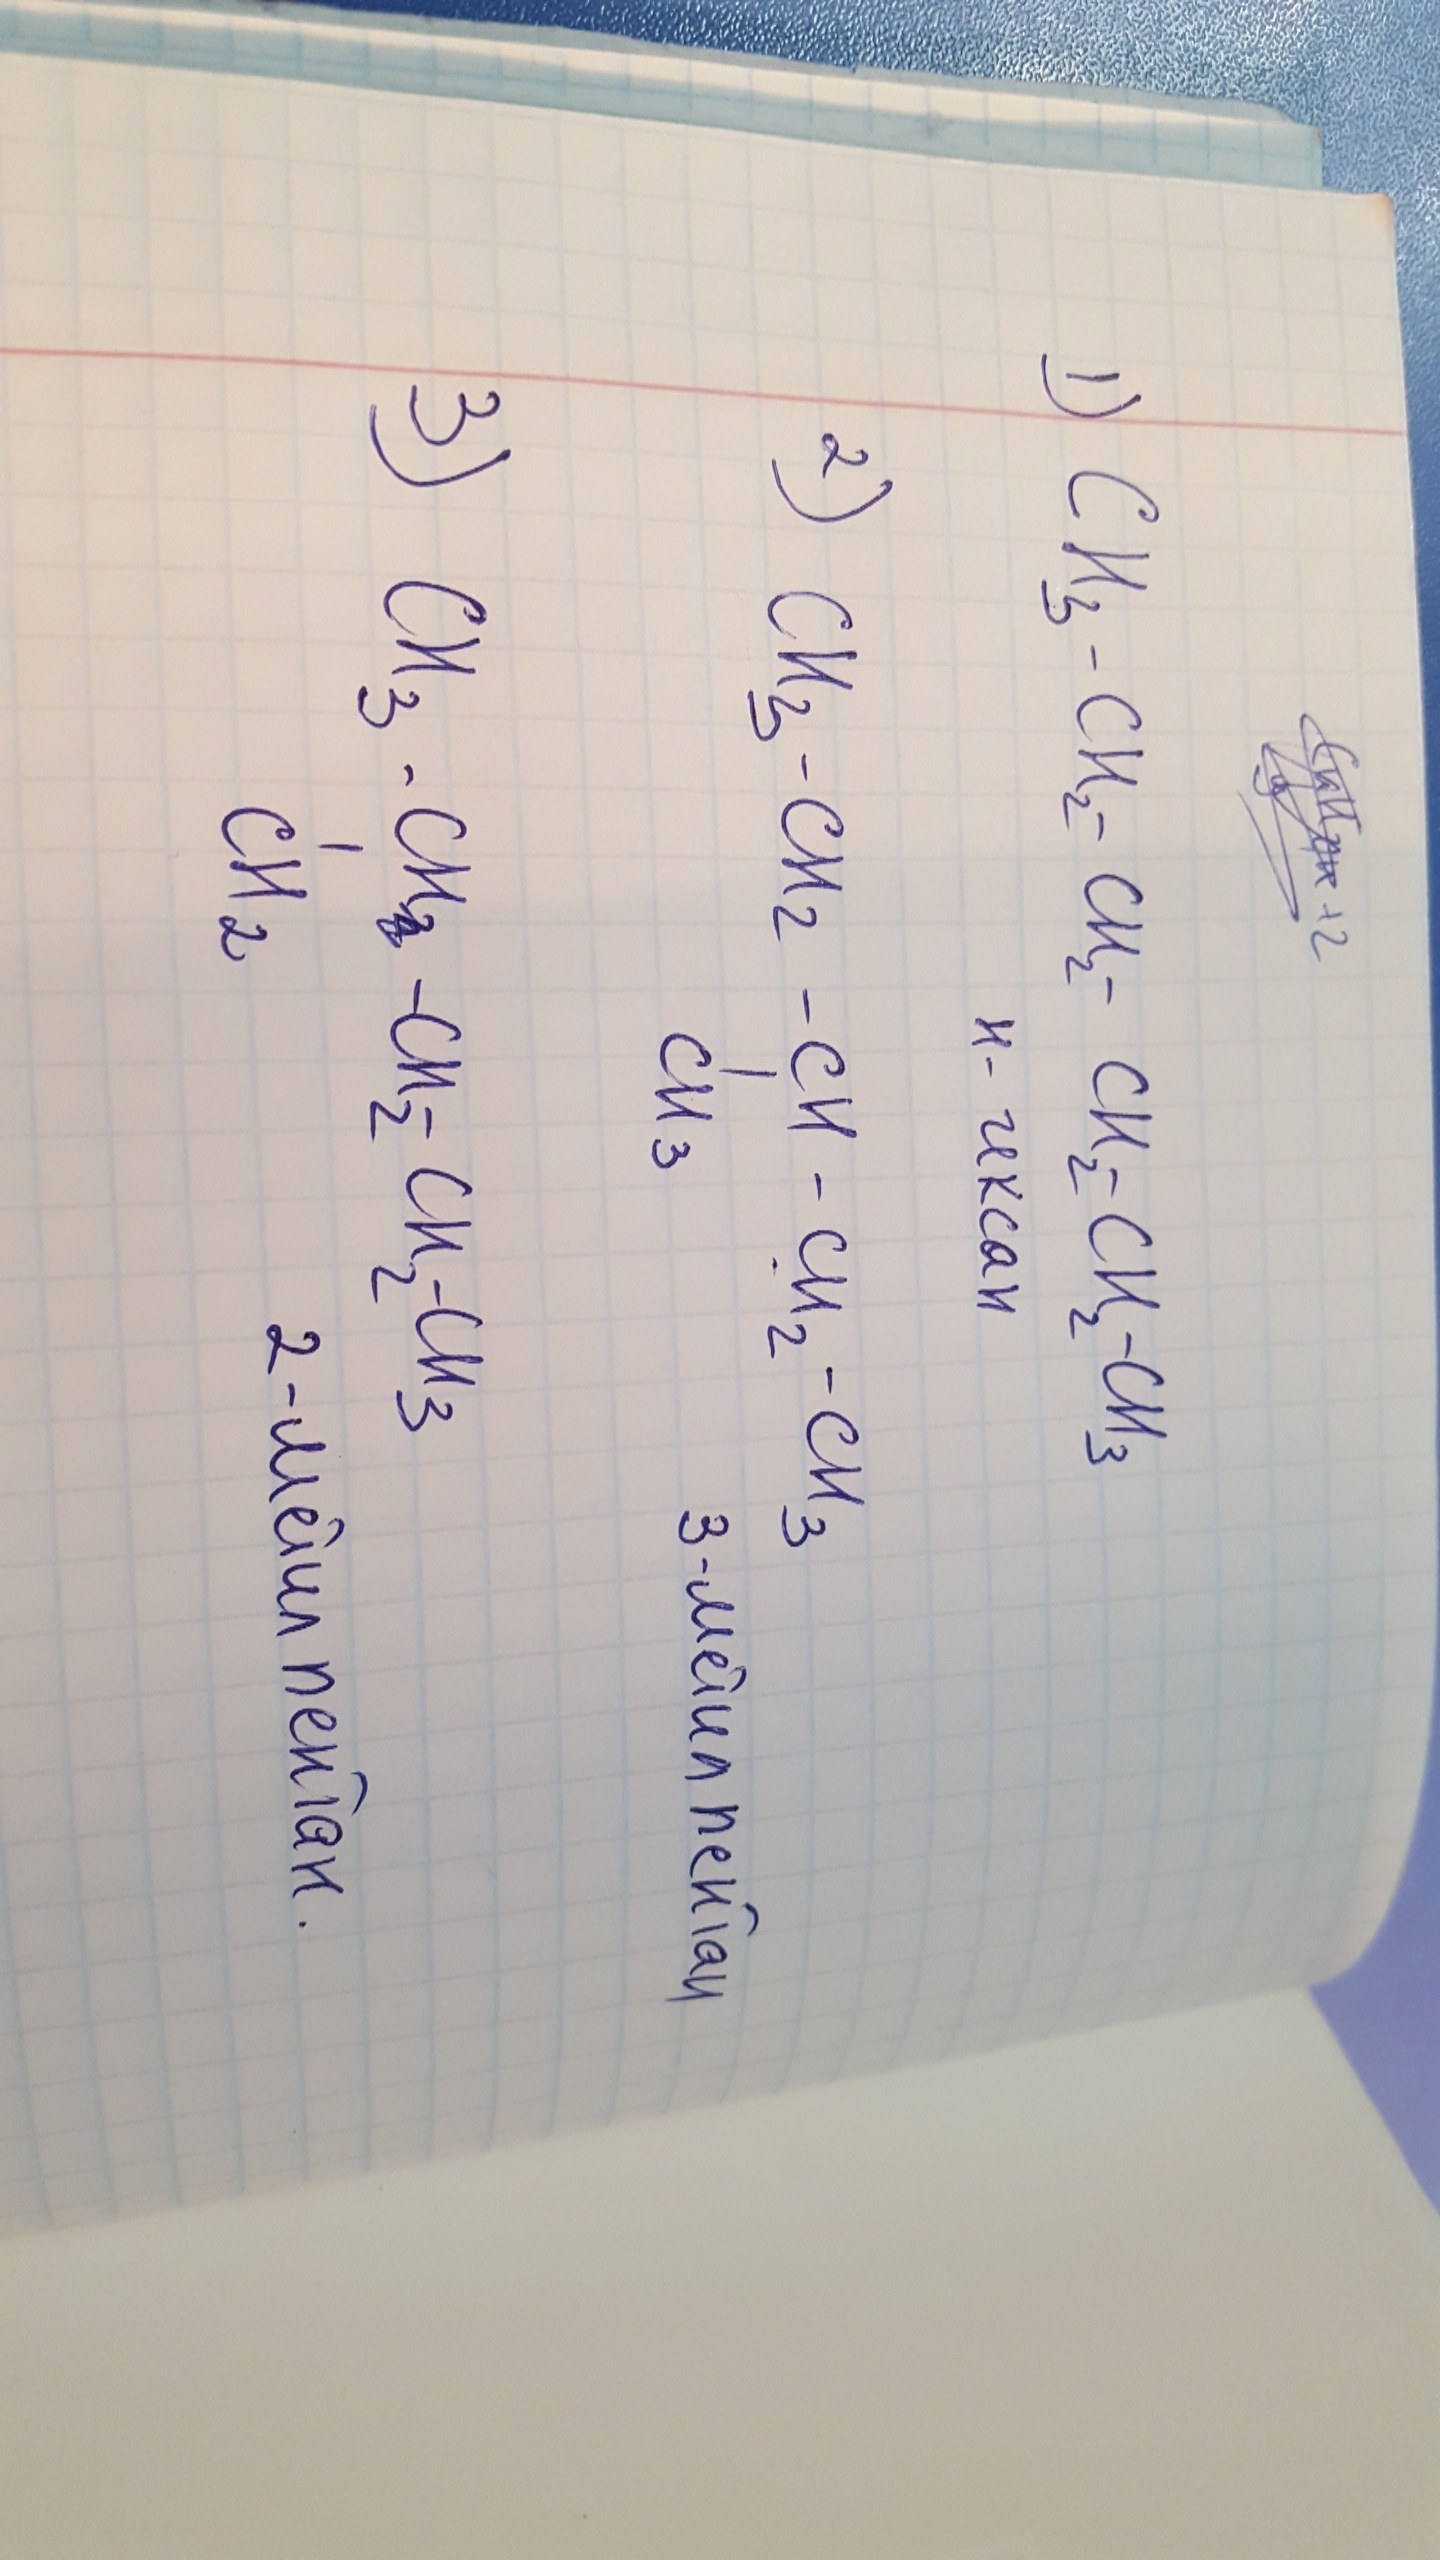 1) CH3-CH2-CH2-CH2-CH2-CH3
н-гексан
2) CH3-CH2-CH-CH2-CH3
CH3
3-метил пентан
3) CH3-CH-CH2-CH2-CH3
CH2
2-метил пентан.